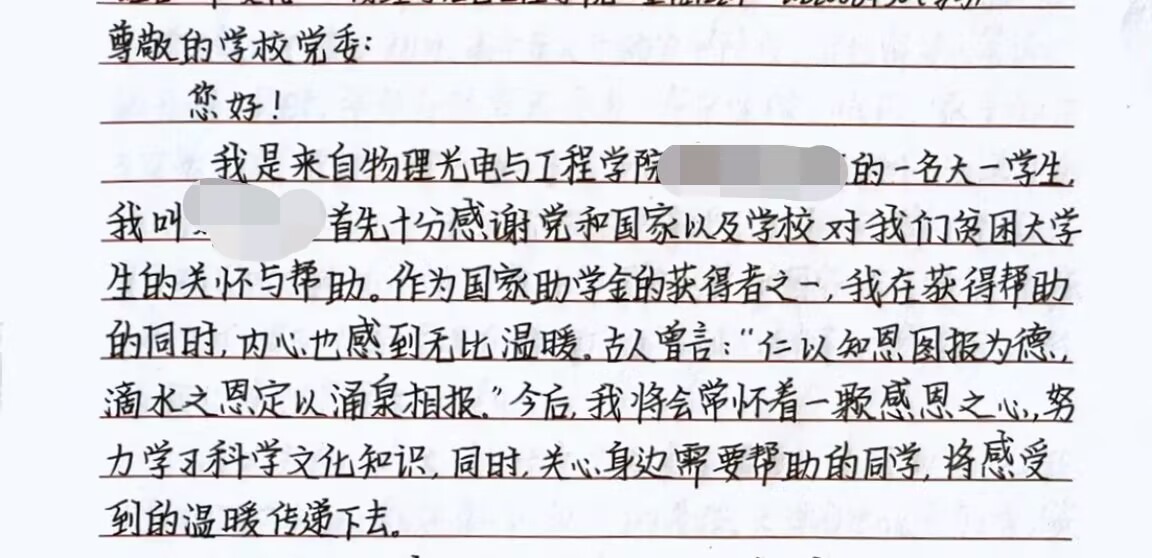 尊敬的学校党委:
您好!
我是来自物理光电与工程学院的一名大一学生,
我叫首先十分感谢党和国家以及学校对我们贫困大学
生的关怀与帮助。作为国家助学金的获得者之一,我在获得帮助
的同时,内心也感到无比温暖。古人曾言:“仁以知恩图报为德,
滴水之恩定以涌泉相报。”今后,我将会常怀着一颗感恩之心,努
力学习科学文化知识,同时,关心身边需要帮助的同学,将感受
到的温暖传递下去。